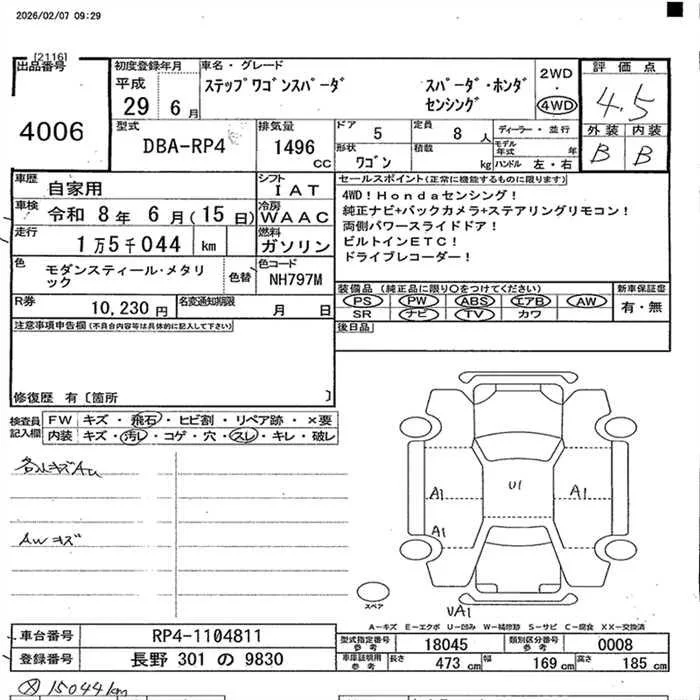 2026/02/07 09:29
[2116]
出品番号
4006
初度登録年月
平成
29 6月
車名・グレード
ステップワゴンスパーダ
スパーダ・ホンダ
センシング
2WD
・
4WD
評価点
4.5
外装 内装
B B
型式
DBA-RP4
排気量
1496
cc
ドア
5
定員
8人
形状
ワゴン
積載
kg
ディーラー・並行
モデル年式 年
ハンドル 左・右
車歴
自家用
シフト
IAT
車検
令和 8年 6月(15日)
冷房
WAAC
走行
1万5千044 km
燃料
ガソリン
色
モダンスティール・メタリック
色替
色コード
NH797M
R券
10,230円
名変通知期限
月 日
セールスポイント(正常に機能するものに限ります)
4WD!Hondaセンシング!
純正ナビ+バックカメラ+ステアリングリモコン!
両側パワースライドドア!
ビルトインETC!
ドライブレコーダー!
装備品(純正品に限り〇をつけてください)
PS PW ABS エアB AW
SR ナビ TV カワ
新車保証書
有・無
後日品
注意事項申告欄(不具合内容等は具体的に記入して下さい)
修復歴 有〔箇所 〕
検査員
記入欄
FW キズ・飛石・ヒビ割・リペア跡・×要
内装 キズ・汚レ・コゲ・穴・スレ・キレ・破レ
各ルキズAu
AWキズ
U1
A1
A1
A1
UA1
スペア
A-キズ E-エクボ U-凹み W-補修跡 S-サビ C-腐食 XX-交換済
車台番号
RP4-1104811
登録番号
長野 301 の 9830
型式指定番号
参考
18045
類別区分番号
参考
0008
車庫証明用
参考
長さ 473cm 幅 169cm 高さ 185cm
15044km